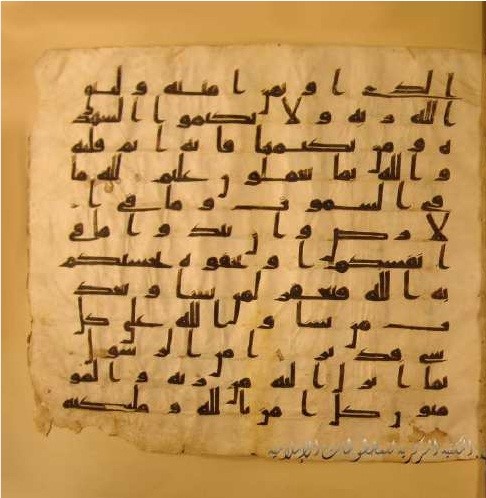 الذى اوتمن امنته وليتق
الله ربه ولا تكتموا الشهد
ه ومن يكتمها فانه اثم قلبه
والله بما تعملون عليم لله ما
فى السموت وما فى ا
لارض وان تبدوا ما فى
انفسكم او تخفوه يحسبكم
به الله فيغفر لمن يشا ويعذ
ب من يشا والله على كل
شى قدير امن الرسول
بما انزل اليه من ربه والمو
منون كل امن بالله وملئكته
المكتبة المركزية للمخطوطات الإسلامية